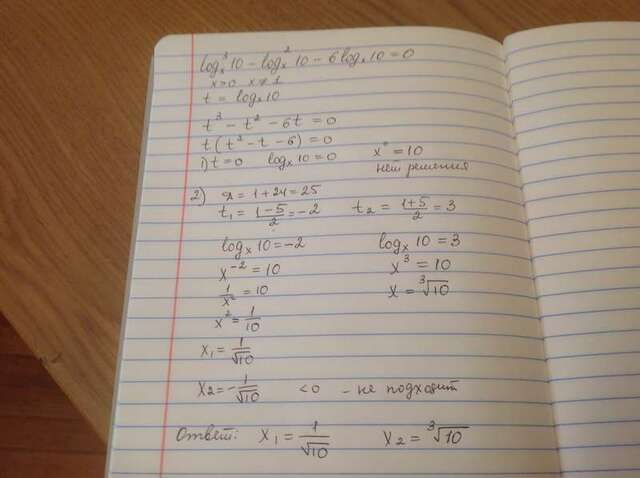 log³ₓ10 - log²ₓ10 - 6logₓ10 = 0
x>0 x≠1
t = logₓ10
t³ - t² - 6t = 0
t(t² - t - 6) = 0
1) t=0 logₓ10 = 0 x⁰ = 10
нет решения
2) D = 1+24 = 25
t₁ = (1-5)/2 = -2 t₂ = (1+5)/2 = 3
logₓ10 = -2 logₓ10 = 3
x⁻² = 10 x³ = 10
1/x² = 10 x = ³√10
x² = 1/10
x₁ = 1/√10
x₂ = -1/√10 <0 - не подходит
Ответ: x₁ = 1/√10 x₂ = ³√10